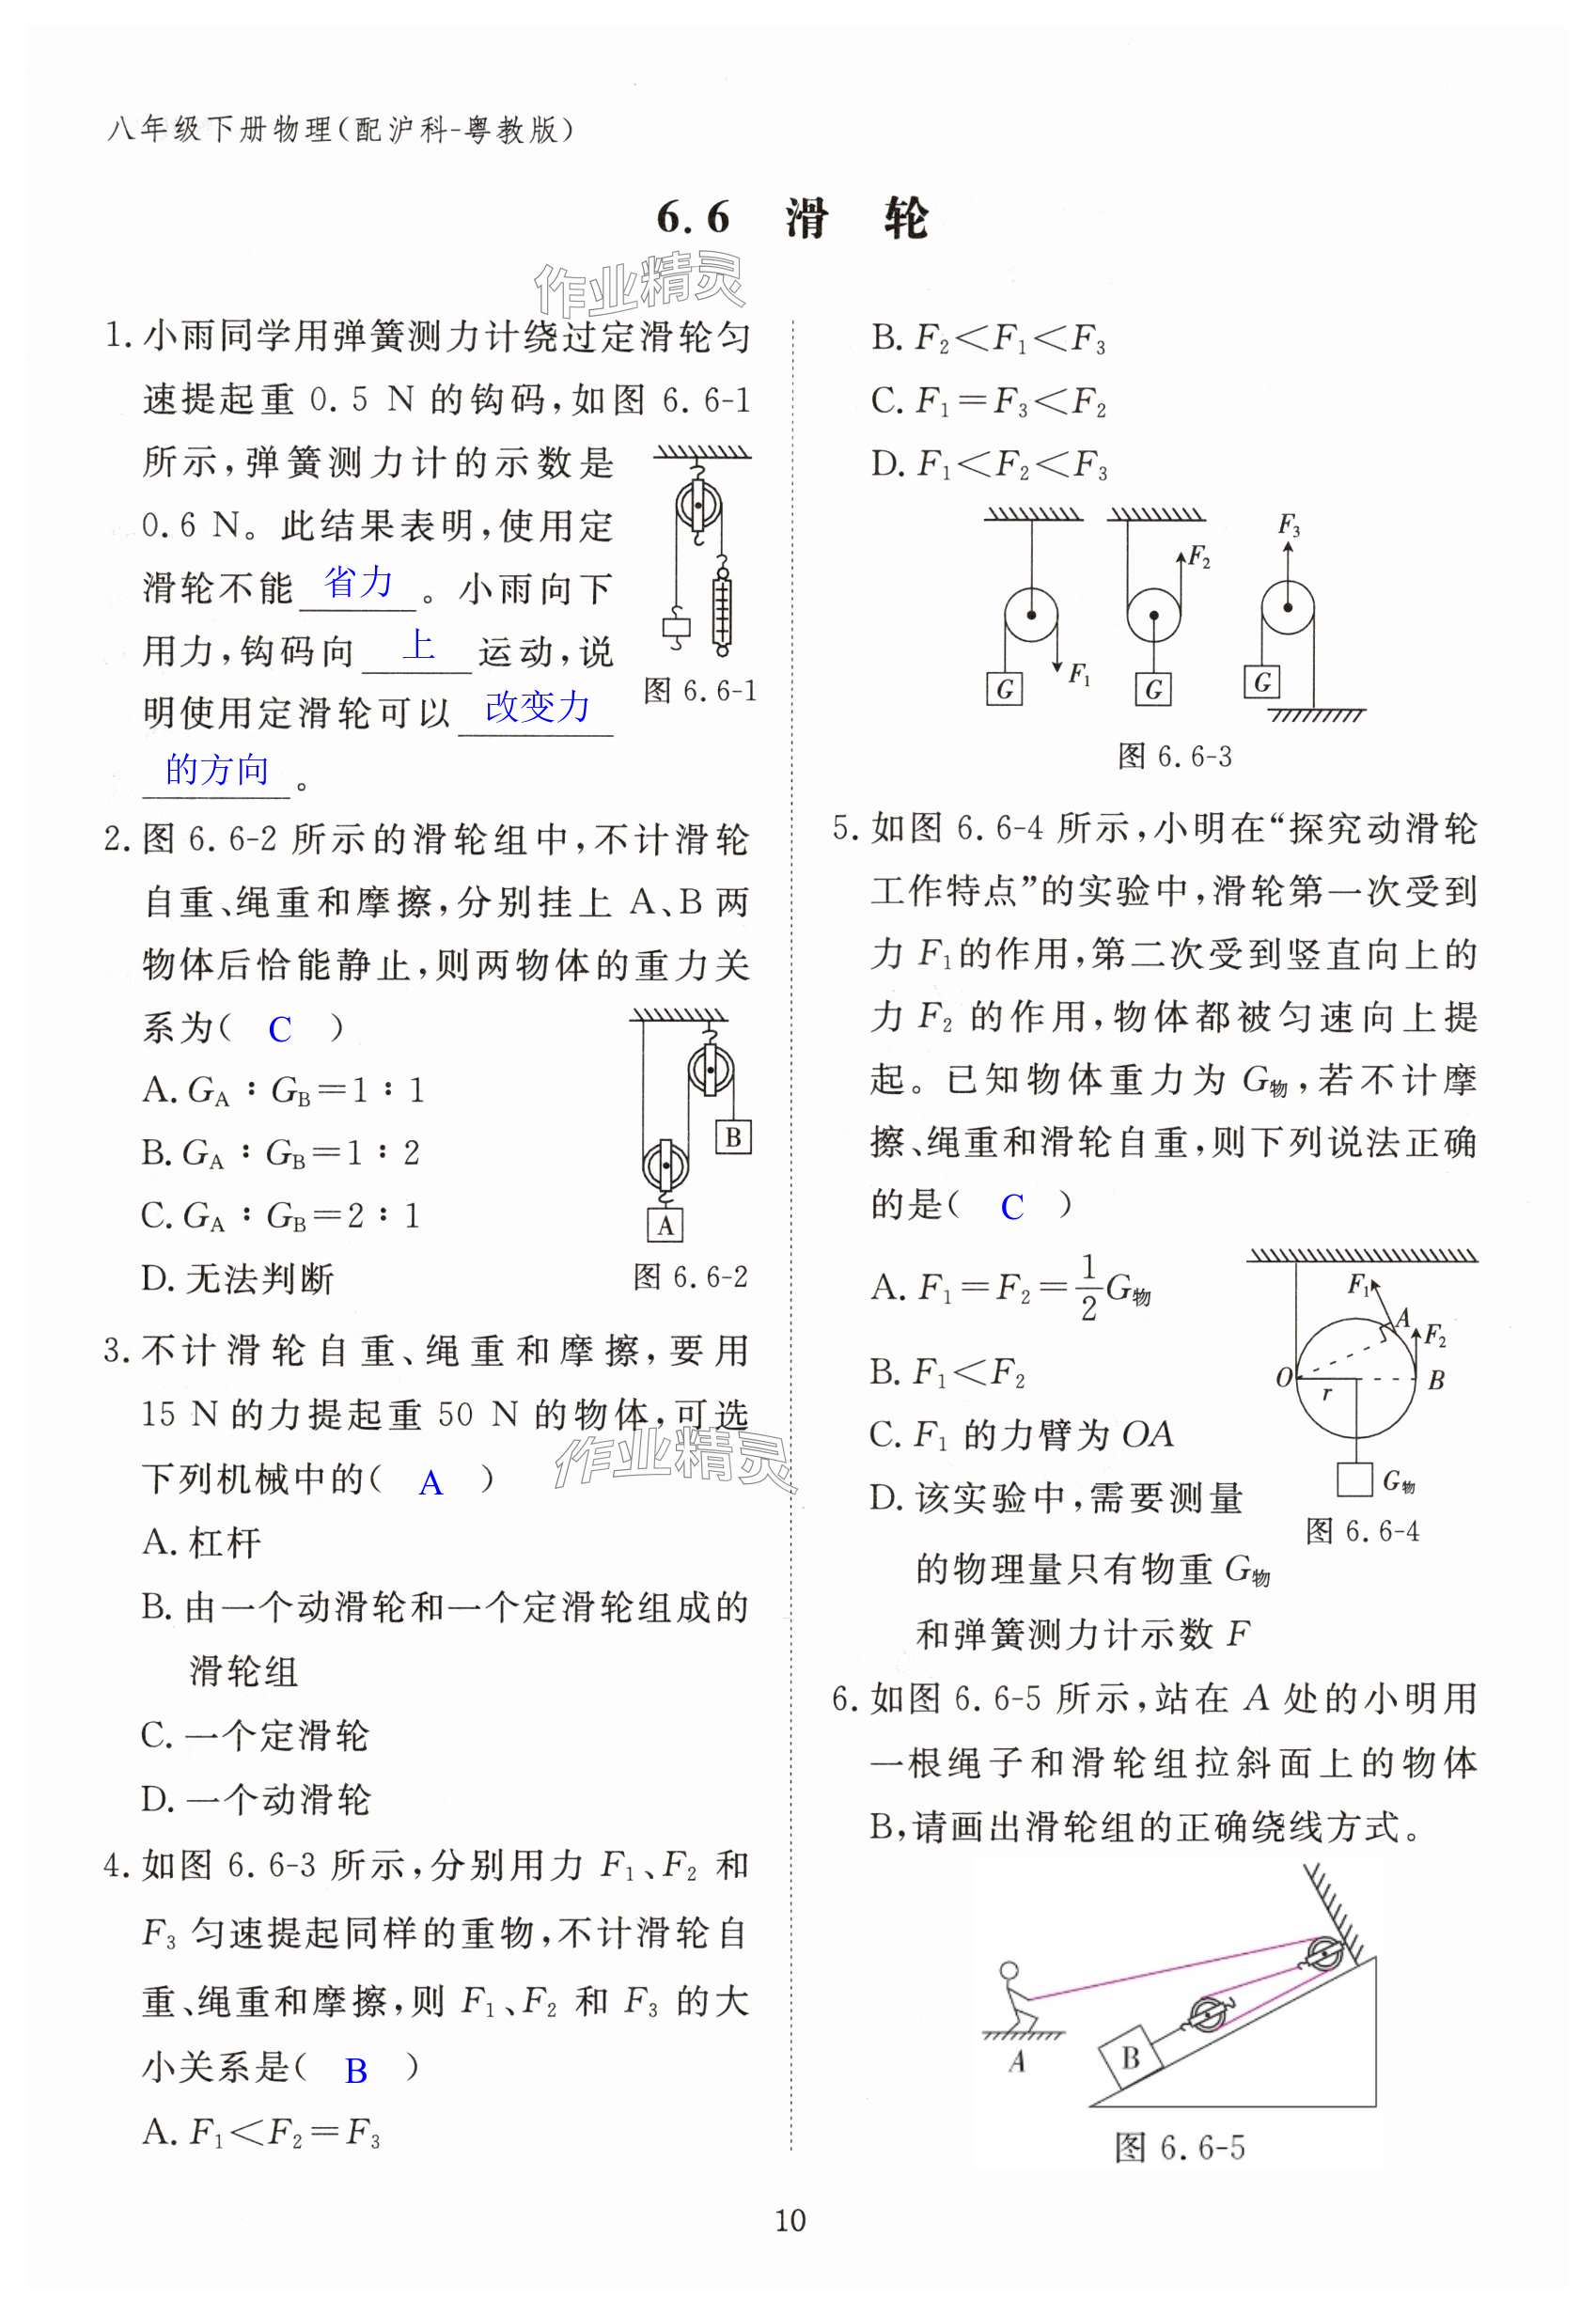 八年级下册物理(配沪科-粤教版)
6.6 滑 轮
作业精灵
1. 小雨同学用弹簧测力计绕过定滑轮匀
速提起重 0.5 N 的钩码,如图 6.6-1
所示,弹簧测力计的示数是
0.6 N。此结果表明,使用定
滑轮不能 省力 。小雨向下
用力,钩码向 上 运动,说
明使用定滑轮可以 改变力
的方向 。
图 6.6-1
2. 图 6.6-2 所示的滑轮组中,不计滑轮
自重、绳重和摩擦,分别挂上 A、B 两
物体后恰能静止,则两物体的重力关
系为( C )
A. G_A∶G_B=1∶1
B. G_A∶G_B=1∶2
C. G_A∶G_B=2∶1
D. 无法判断
B
A
图 6.6-2
3. 不计滑轮自重、绳重和摩擦,要用
15 N 的力提起重 50 N 的物体,可选
下列机械中的( A )
作业精灵
A. 杠杆
B. 由一个动滑轮和一个定滑轮组成的
滑轮组
C. 一个定滑轮
D. 一个动滑轮
4. 如图 6.6-3 所示,分别用力 F₁、F₂ 和
F₃ 匀速提起同样的重物,不计滑轮自
重、绳重和摩擦,则 F₁、F₂ 和 F₃ 的大
小关系是( B )
A. F₁<F₂=F₃
B. F₂<F₁<F₃
C. F₁=F₃<F₂
D. F₁<F₂<F₃
F₃
F₂
F₁
G G G
图 6.6-3
5. 如图 6.6-4 所示,小明在“探究动滑轮
工作特点”的实验中,滑轮第一次受到
力 F₁的作用,第二次受到竖直向上的
力 F₂ 的作用,物体都被匀速向上提
起。已知物体重力为 G物,若不计摩
擦、绳重和滑轮自重,则下列说法正确
的是( C )
A. F₁=F₂=1/2 G物
B. F₁<F₂
C. F₁ 的力臂为 OA
D. 该实验中,需要测量
的物理量只有物重 G物
和弹簧测力计示数 F
F₁
A
F₂
O
r
B
G物
图 6.6-4
6. 如图 6.6-5 所示,站在 A 处的小明用
一根绳子和滑轮组拉斜面上的物体
B,请画出滑轮组的正确绕线方式。
A
B
图 6.6-5
10